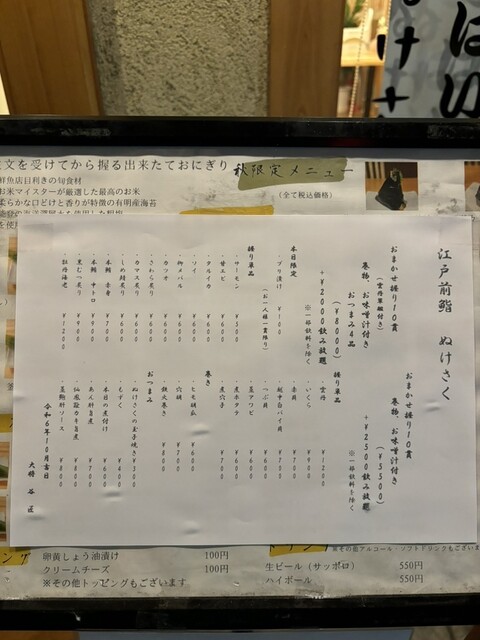 注文を受けてから握る出来たておにぎり
秋限定メニュー
鮮魚店目利きの旬食材
お米マイスターが厳選した最高のお米
柔らかな口どけと香りが特徴の有明産海苔
(全て税込価格)
江戸前鮨 ぬけさく
おまかせ握り10貫
(雲丹軍艦付き)
巻物、お味噌汁付き
おつまみ4品
(¥8000)
+¥2000飲み放題
※一部飲料を除く
おまかせ握り10貫
巻物、お味噌汁付き
(¥5500)
+¥2500飲み放題
※一部飲料を除く
本日限定
・ブリ漬け
握り単品
(お一人様一貫限り)
・サーモン ¥500
・甘エビ ¥600
・アルイカ ¥600
・ソイ ¥600
・卵メバル ¥600
・カツオ ¥600
・さわら炙り ¥600
・カマス炙り ¥600
・しめ鯖炙り ¥600
・本鮪 赤身 ¥700
・本鮪 中トロ ¥900
・黒むつ炙り ¥900
・牡丹海老 ¥1200
握り単品
・雲丹 ¥1200
・いくら
・赤貝 ¥700
・つぶ貝
・蒸アワビ
・煮ホタテ
・煮穴子 ¥700
巻き
・ヒモ胡瓜 ¥600
・穴胡
・鉄火巻き ¥800
おつまみ
・ぬけさくのお手焼き ¥300
・もずく ¥400
・本日の煮付け ¥600
・あん肝旨煮 ¥700
・仙鳳趾カキ旨煮 ¥800
・真鯛肝ソース ¥800
令和6年10月吉日
大将 谷 匠
卵黄しょう油漬け 100円
クリームチーズ 100円
※その他トッピングもございます
※その他アルコール・ソフトドリンクもございます
生ビール(サッポロ) 550円
ハイボール 550円